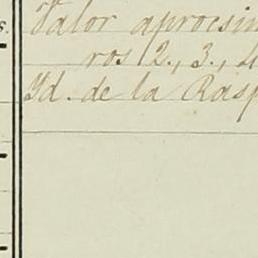 s.
Valor aprocsim
ros 2., 3., 4
Yd. de la Rasp